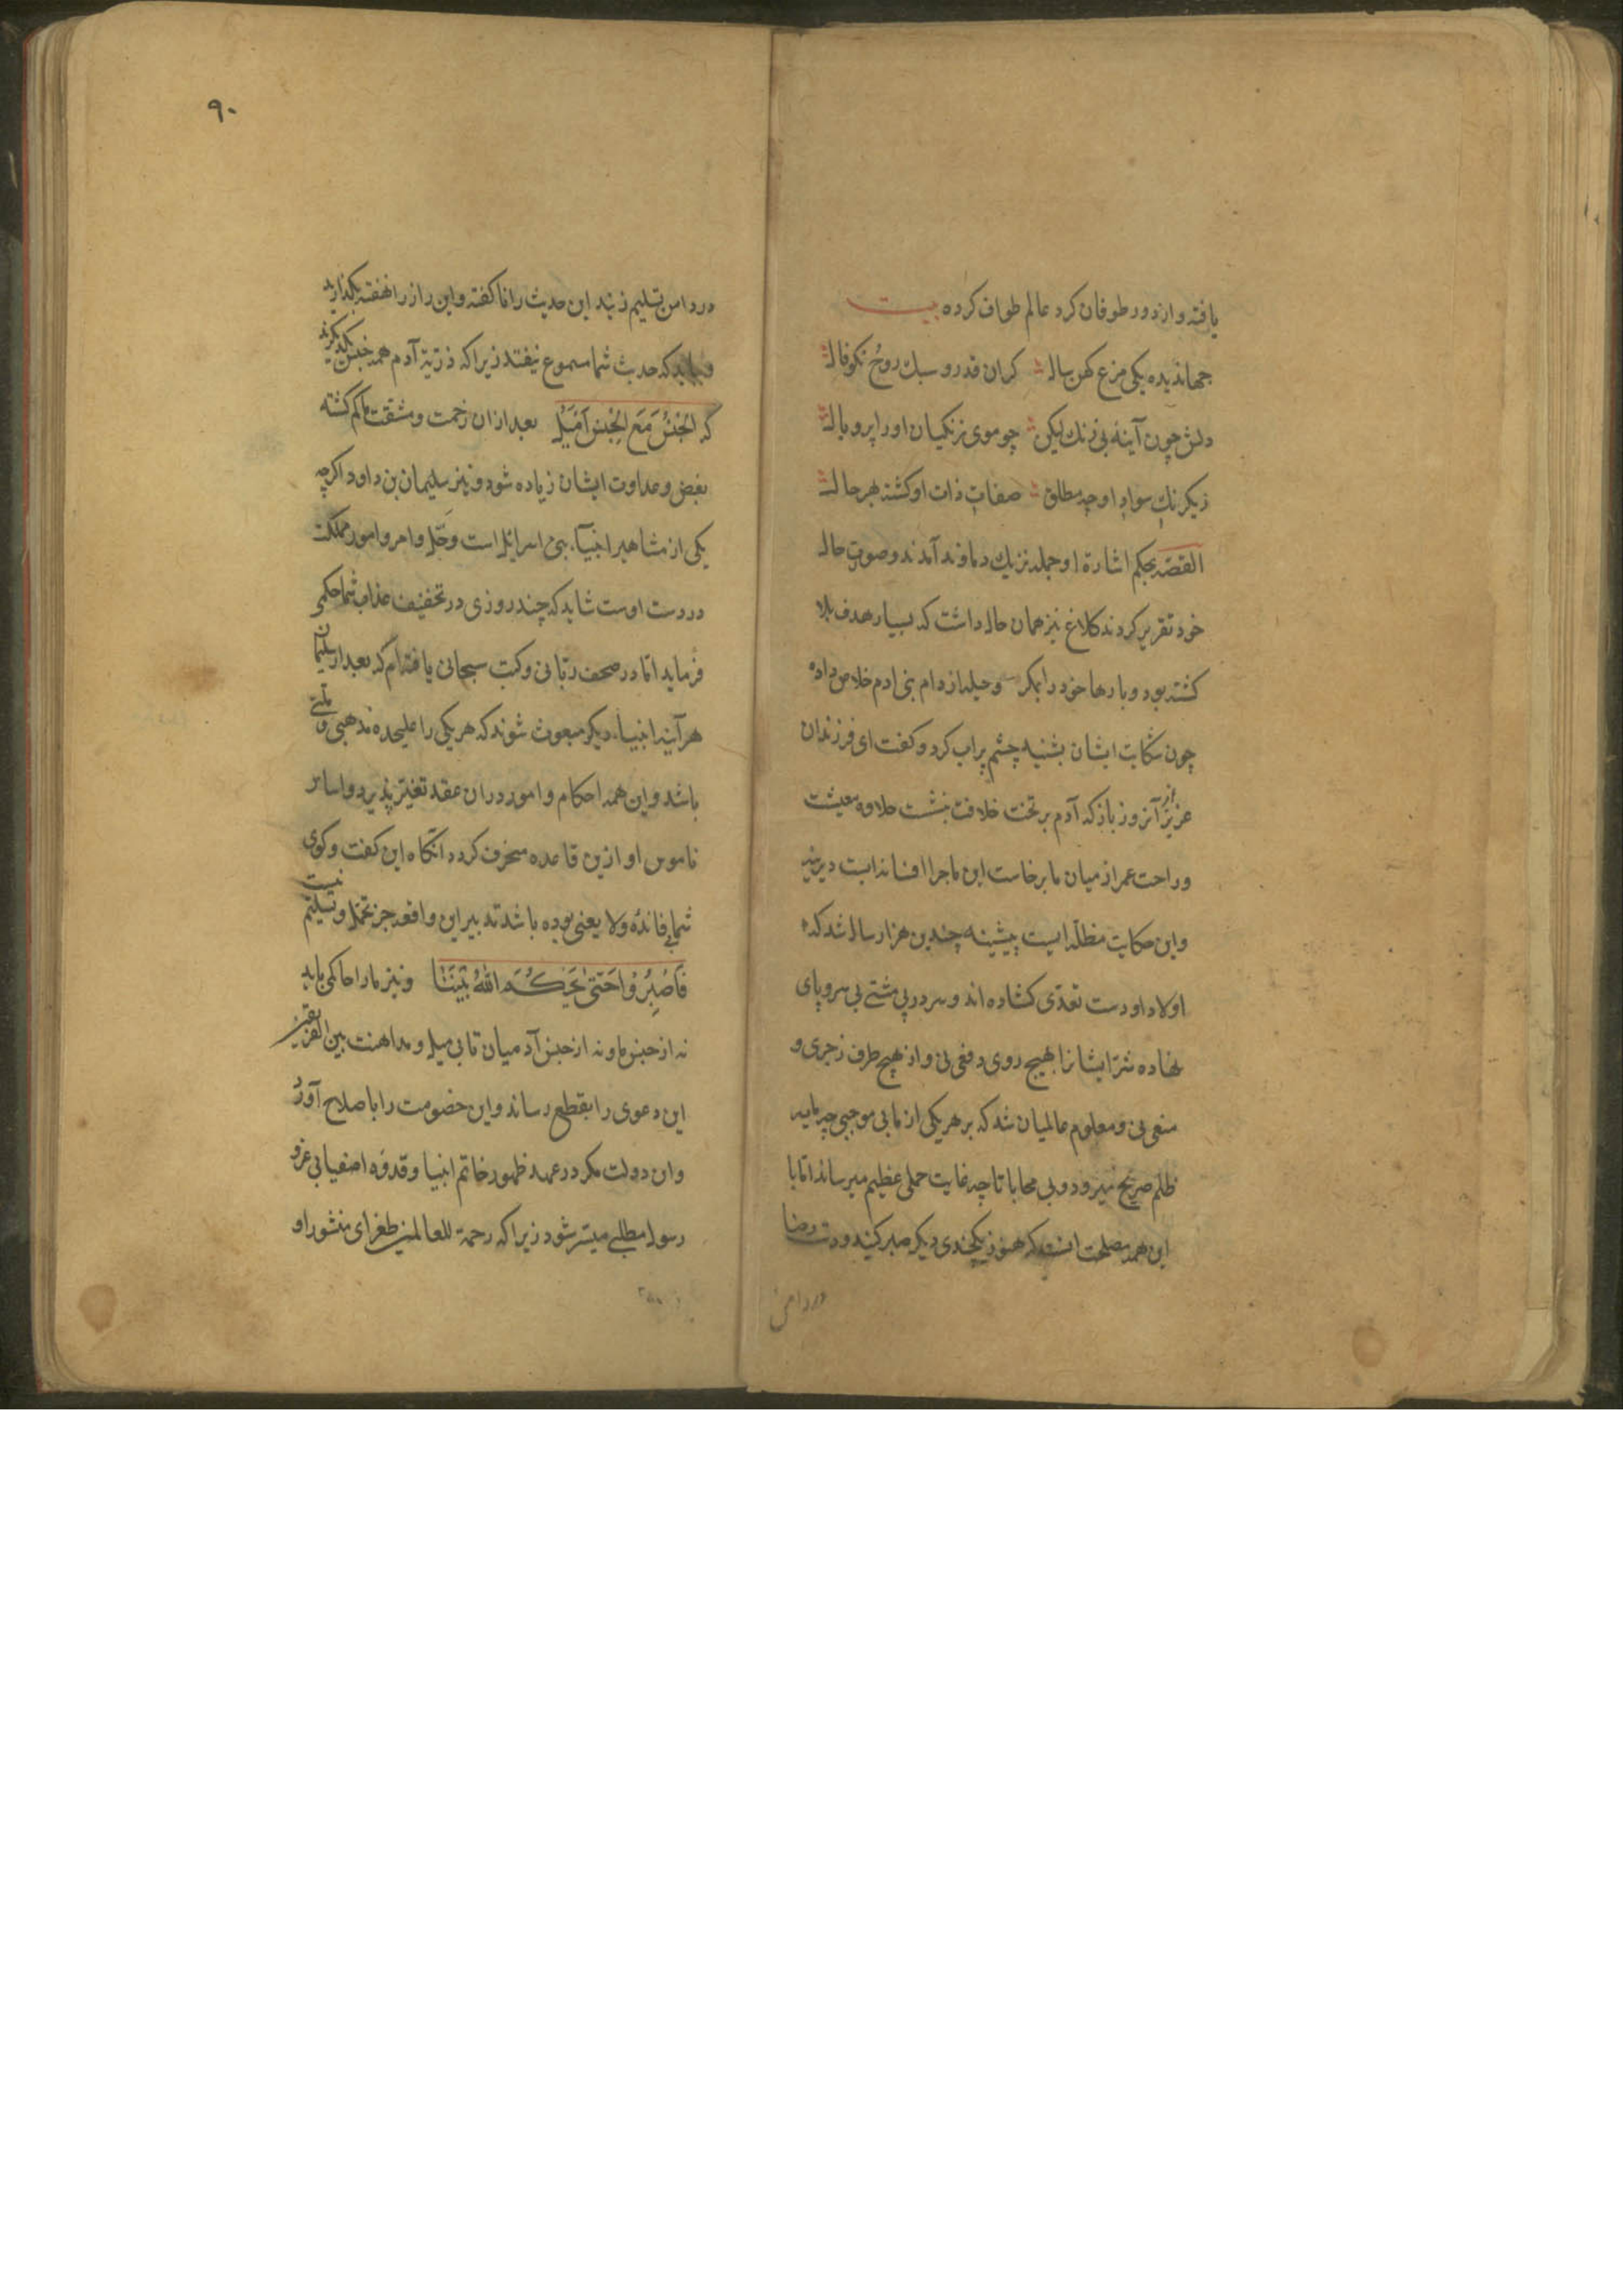 یافته و از دور طوفان کرد عالم طواف کرده بیت
جهاندیده یکی مرغ کهن سال کران قدر و سبک روح نکوفال
دلش چون آینه بی زنک لیکن چو موی زنکیان او را پر و بال
ز یکرنک سواد او جه مطلق صفات ذات او کشته بهر حال
القصه بحکم اشارة او جمله نزدیک دماوند آمدند و صورت حال
خود تقریر کردند کلاغ نیز همان حال داشت که بسیار هدف بلا
کشته بود و بارها خود را بمکر و حیله از دام بنی ادم خلاص داده
چون شکایت ایشان بشنید چشم پر اب کرد و کفت ای فرزندان
عزیز از آنروز باز که آدم بر تخت خلافت بنشست حلاوه معیشت
و راحت عمر از میان ما برخاست این ماجرا افسانه ایست دیرینه
و این حکایت مظلمه ایست پیشینه چندین هزار سال شد که
اولاد او دست تعدی کشاده اند و سر در پی مشتی بی سر و پای
نهاده شر ایشانرا بهیچ روی دفعی نی و از هیچ طرف زجری و
منعی نی و معلوم عالمیان شد که بر هر یکی از ما بی موجبی چه مایه
ظلم صریح میرود و بی محابا تا چه غایت حملی عظیم میرساند اما با
این همه مصلحت انست که هنوز یکچندی دیکر صبر کنید و دست رضا
در دامن
۹۰
در دامن تسلیم زنید این حدیث را ناکفته و این راز را نهفته بکذارید
و نباید که حدیث شما مسموع نیفتد زیرا که ذریة آدم همه جنس یکدیکرند
که الجنس مع الجنس امیل بعد از ان زحمت و مشقت ما کم کشته
بغض و عداوت ایشان زیاده شود و نیز سلیمان بن داود اکرچه
یکی از مشاهیر انبیاء بنی اسرائیل است و حل و امر و امور مملکت
در دست اوست شاید که چند روزی در تخفیف عذاب شما حکمی
فرماید اما در صحف ربانی و کتب سبحانی یافته ام که بعد از سلیمان
هر آینه انبیاء دیکر مبعوث شوند که هر یکی را علیحده مذهبی و ملتی
باشد و این همه احکام و امور در ان عقد تغییر پذیرد و اساس
ناموس او ازین قاعده منحرف کردد انکاه این کفت و کوی
شما بی فائده و لا یعنی بوده باشد تدبیر این واقعه جز تحمل و تسلیم نیست
فاصبروا حتی یحکم الله بیننا و نیز ما را حاکمی باید
نه از جنس ما و نه از جنس آدمیان تا بی میل و مداهنت بین الفریقین
این دعوی را بقطع رساند و این خصومت را باصلاح آورد
و ان دولت مکر در عهد ظهور خاتم انبیا و قدوه اصفیا
رسول مطلبی میسر شود زیرا که رحمة للعالمین طغرای منشور او